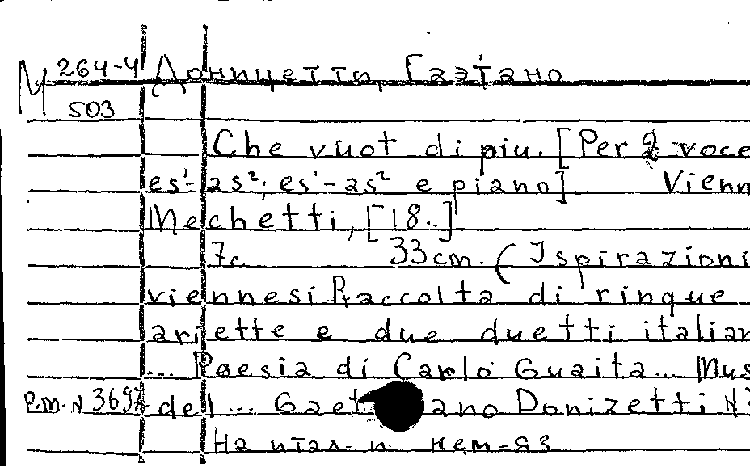 М 264-4 Доницетти, Гаэтано
503
Che vuot di piu. [Per 2 voce
es¹-as²; es¹-as² e piano] Vienn
Mechetti, [18..]
7с. 33cm. (Ispirazioni
viennesi. Raccolta di cinque
ariette e due duetti italian
... Poesia di Carlo Guaita... Mus
P.M. N 3697 del ... Gaetano Donizetti N
На итал. и нем-яз